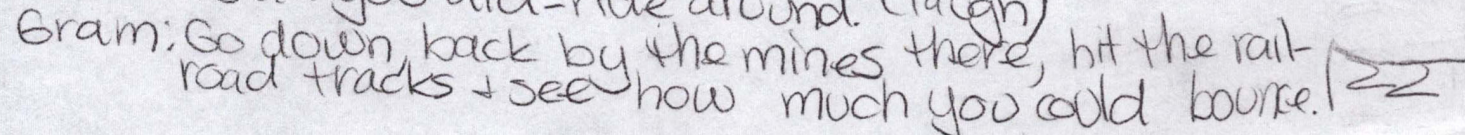 ride around. (laugh)
Gram: Go down, back by the mines there, hit the rail-
road tracks + see how much you could bounce. 22